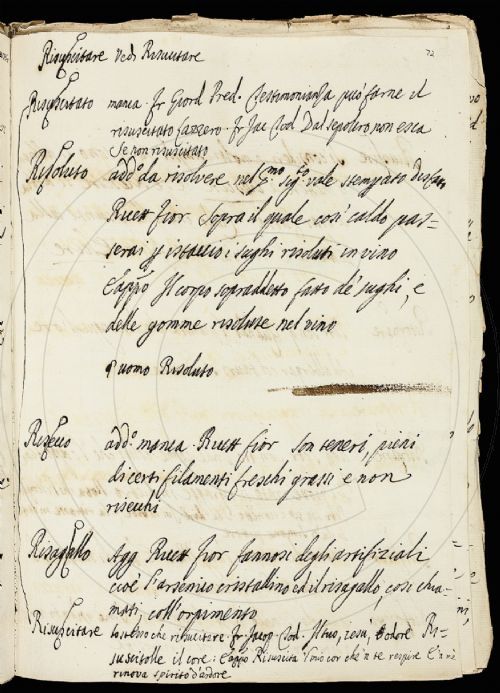 Risuscitare Vedi Risucitare
72
Risuscitato manca. Fr Giord Pred. Testimonianza può farne il
risuscitato Lazzero. Fr Jac Tod. Dal sepolcro non esca
Se non risuscitato
Risoluto add.o da risolvere nel sig.to vale stemp.ato
Ricett Fior Sopra il quale così caldo pas-
serai p istaccio i sughi risoluti in vino
E appò Il corpo sopraddetto fatto de sughi, e
delle gomme risolute nel vino
Quomo Risoluto
Risecco add.o manca. Ricett Fior Son teneri, pieni
di certi filamenti freschi grassi e non
risecchi
Risagallo Agg Ricett Fior fannosi degli artifiziali
cioè l'arsenico cristallino ed il risagallo, così chia-
mati, coll'orpimento
Risuscitare lo stesso che risucitare. Fr Jacop Tod. Il tuo, Ri-
suscitolle il core: E appò Risuscita
rinova spirito d'ardore